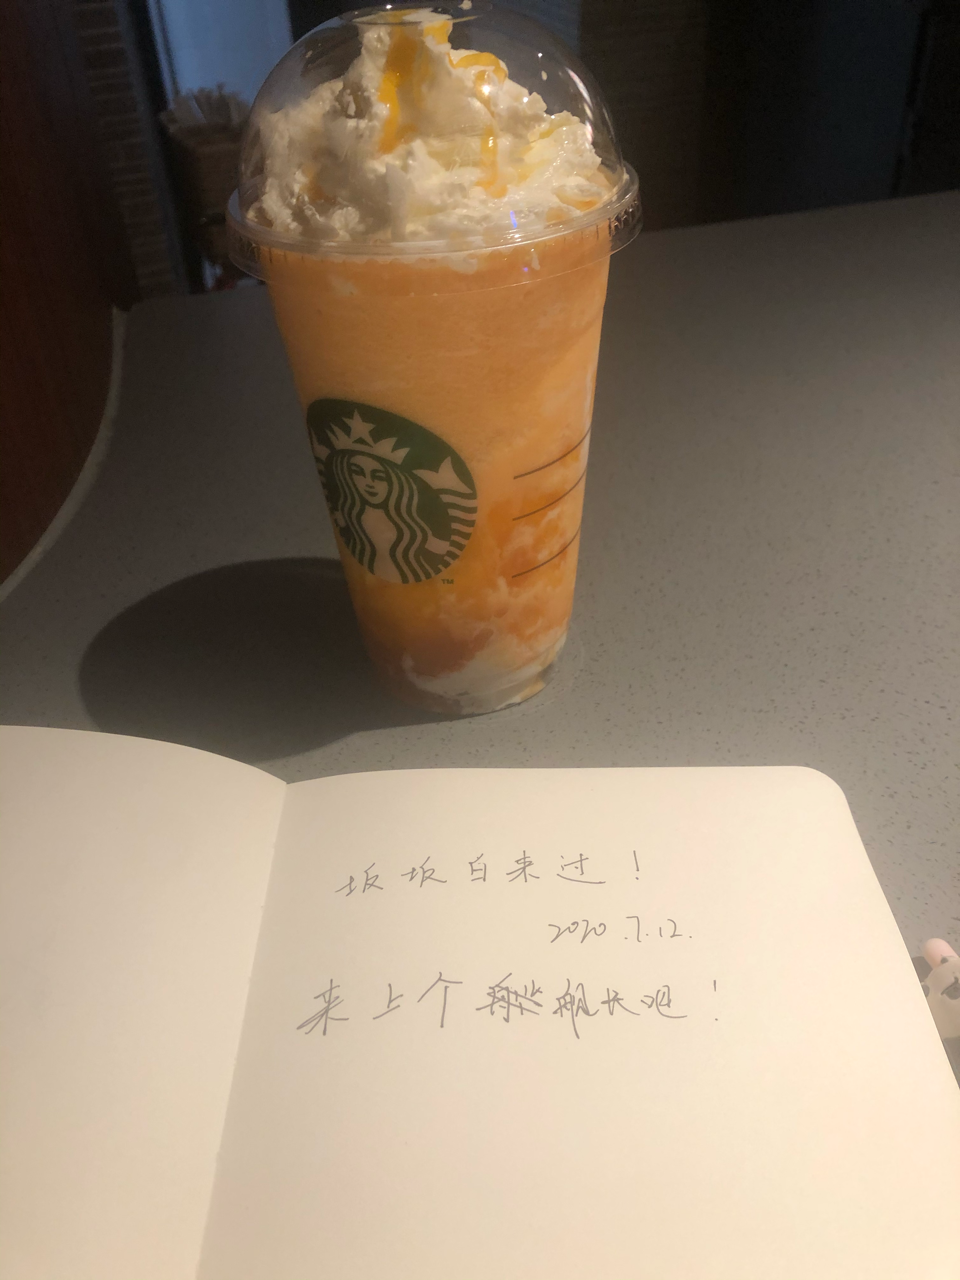 ™
坂坂白来过！
2020.7.12.
来上个舰长吧！